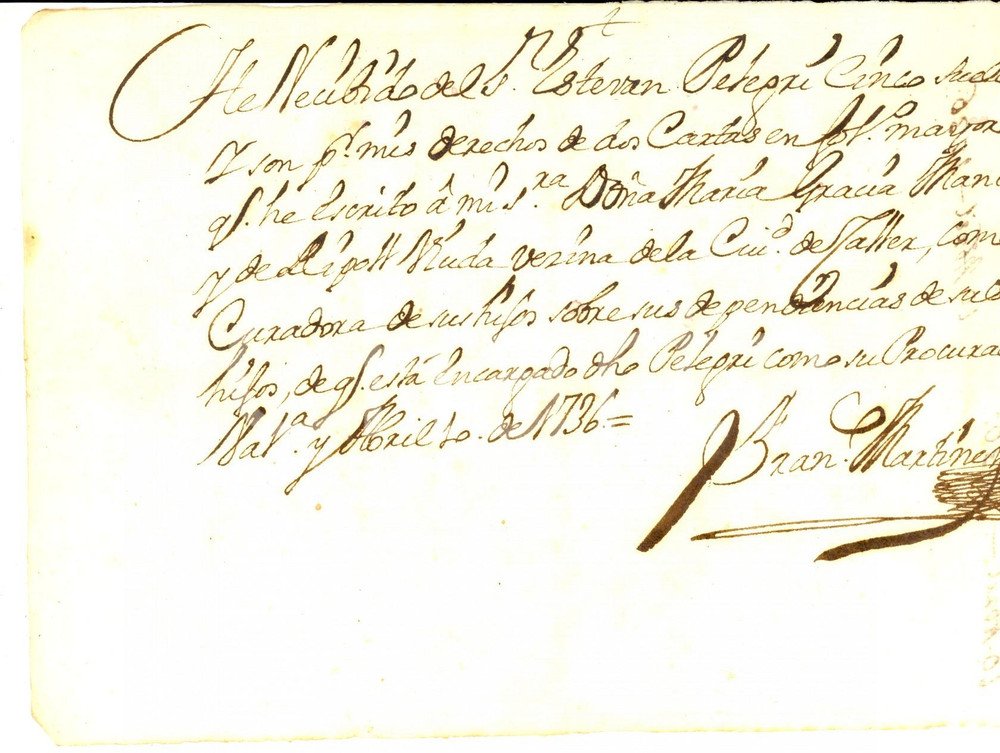 He Recibido del S.r Estevan Pelegri Cinco
y son p.r mis derechos de dos Cartas en fol.o mayor
q.e he escrito â mi S.ra Doña Maria Gracia
y de Ripoll Viuda vezina de la Ciu.d de Jativa, com
Curadora de sus hijos sobre sus dependencias de su
hijos, de q.e está encargado dho Pelegri como su Procura
Val.a y Abril de 1736 =
Fran.co Martinez